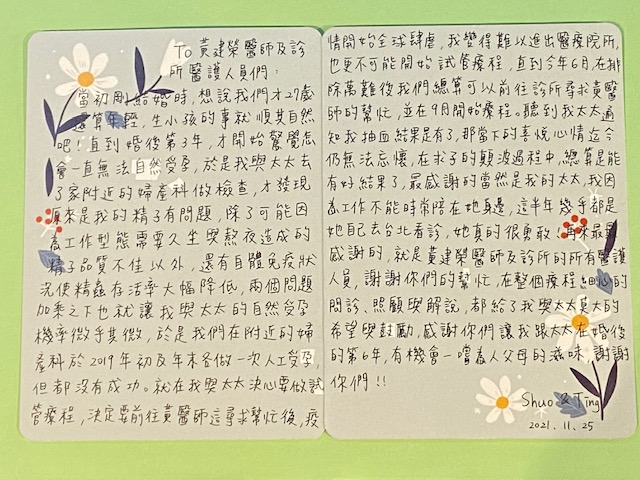 To 黃建榮醫師及診
所醫護人員們:
當初剛結婚時,想說我們才27歲
還算年輕,生小孩的事就順其自然
吧!直到婚後第3年,才開始驚覺怎
會一直無法自然受孕,於是我與太太去
了家附近的婦產科做檢查,才發現
原來是我的精子有問題,除了可能因
為工作型態需要久坐與熬夜造成的
精子品質不佳以外,還有自體免疫狀
況使精蟲存活率大幅降低,兩個問題
加乘之下也就讓我與太太的自然受孕
機率微乎其微,於是我們在附近的婦
產科於2019年初及年末各做一次人工受孕,
但都沒有成功。就在我與太太決心要做試
管療程,決定要前往黃醫師這尋求幫忙後,疫
情開始全球肆虐,我變得難以進出醫療院所,
也更不可能開始試管療程,直到今年6月,在排
除萬難後我們總算可以前往診所尋求黃醫
師的幫忙,並在9月開始療程。聽到我太太通
知我抽血結果是有了,那當下的喜悅心情迄今
仍無法忘懷,在求子的顛波過程中,總算是能
有好結果了,最感謝的當然是我的太太,我因
為工作不能時常陪在她身邊,這半年幾乎都是
她自己去台北看診,她真的很勇敢!再來最
感謝的,就是黃建榮醫師及診所的所有醫護
人員,謝謝你們的幫忙,在整個療程細心的
問診、照顧與解說,都給了我與太太莫大的
希望與鼓勵,感謝你們讓我跟太太在婚後
的第6年,有機會一嚐為人父母的滋味,謝謝
你們!!
Shuo & Ting
2021.11.25